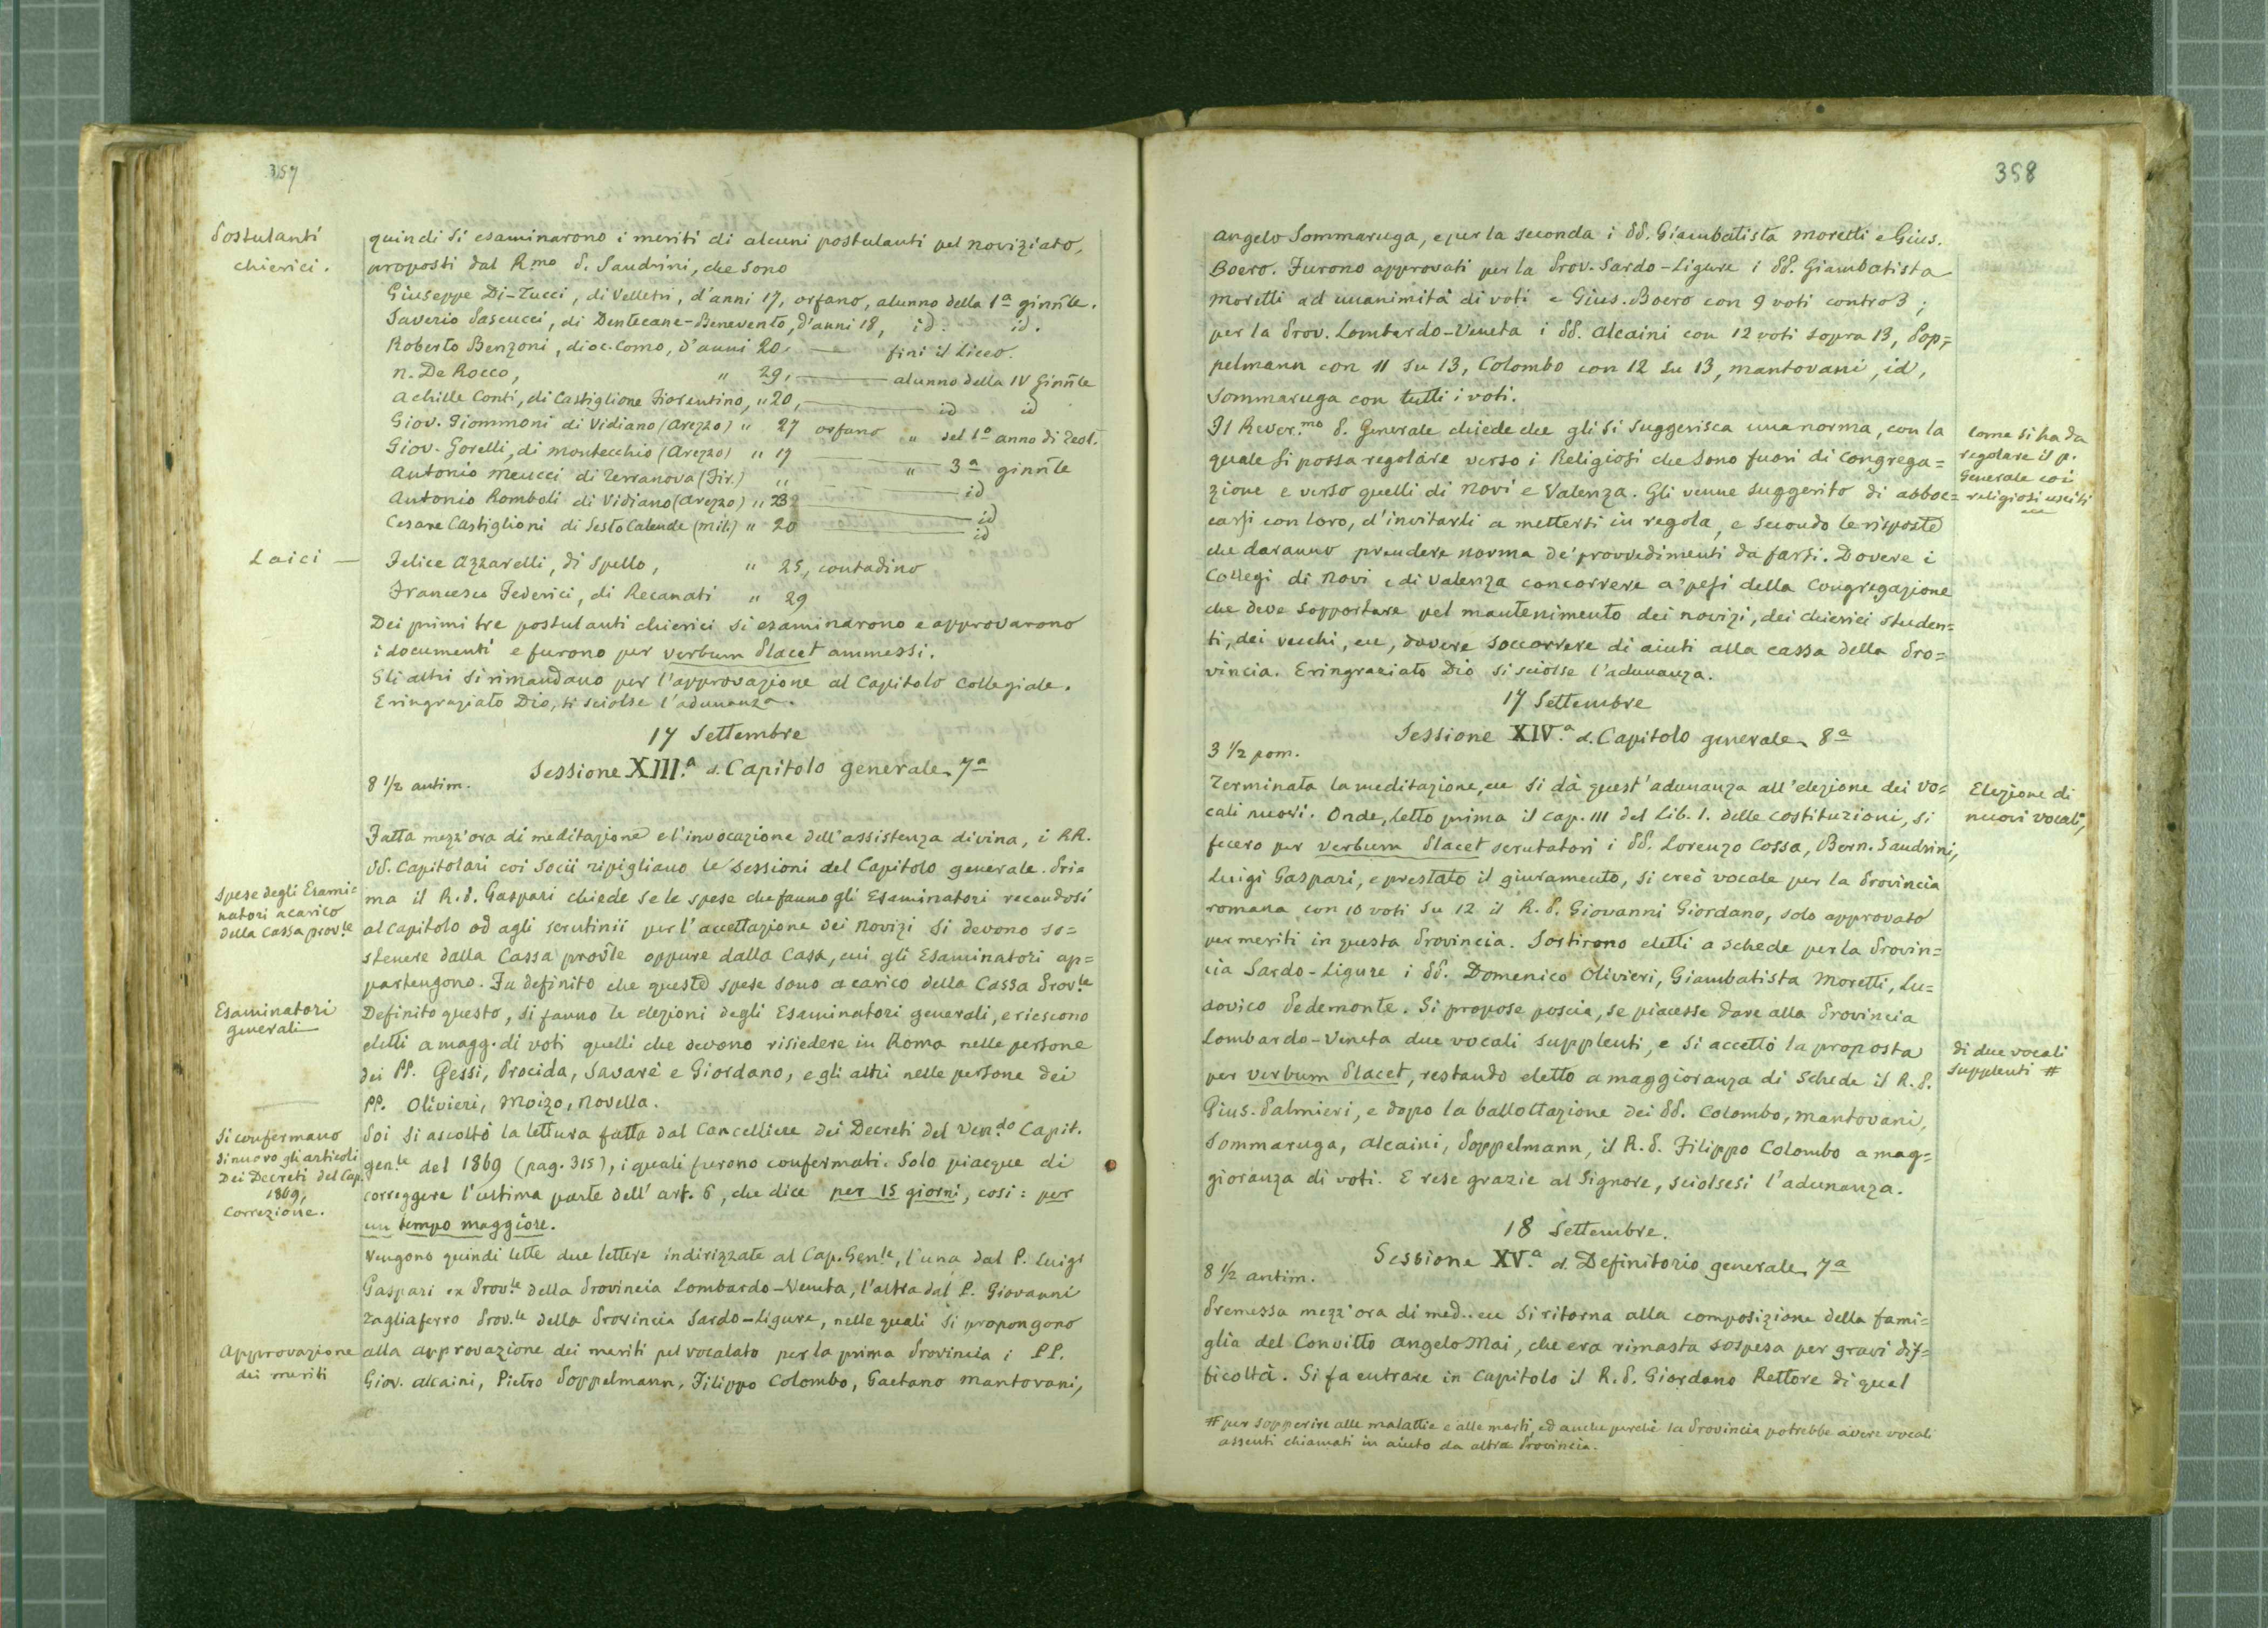 357
Postulanti
chierici.
quindi si esaminarono i meriti di alcuni postulanti pel noviziato,
proposti dal R.mo P. Sandrini, che sono
Giuseppe Di-Tucci, di Velletri, d'anni 17, orfano, alunno della 1a ginn̄le.
Saverio Pascucci, di Dentecane-Benevento, d'anni 18, id. id.
Roberto Benzoni, dioc. Como, d'anni 20. — finì il Liceo.
N. De Rocco, " 29, — alunno della IV Ginn̄le
Achille Conti, di Castiglione Fiorentino, " 20, — id id
Giov. Giommoni di Vidiano (Arezzo) " 27 orfano " del 1o anno di Teol.
Giov. Gorelli, di Montecchio (Arezzo) " 19 — " 3a ginn̄le
Antonio Meucci di Terranova (Fir.) " — id
Antonio Romboli di Vidiano (Arezzo) " 232 — id
Cesare Castiglioni di Sesto Calende (Mil.) " 20 — id
Laici —
Felice Azzarelli, di Spello, " 25, contadino
Francesco Federici, di Recanati " 29
Dei primi tre postulanti chierici si esaminarono e approvarono
i documenti e furono per verbum Placet ammessi.
Gli altri si rimandano per l'approvazione al Capitolo Collegiale.
E ringraziato Dio, si sciolse l'adunanza.
17 Settembre
Sessione XIII.a d. Capitolo generale 7a
8 1/2 antim.
Fatta mezz'ora di meditazione e l'invocazione dell'assistenza divina, i RR.
PP. Capitolari coi Socii ripigliano le Sessioni del Capitolo generale. Pri=
Spese degli Esami=
natori a carico
della Cassa prov.le
ma il R. P. Gaspari chiede se le spese che fanno gli Esaminatori recandosi
al Capitolo od agli scrutinii per l'accettazione dei Novizi si devono so=
stenere dalla Cassa prov̄le oppure dalla Casa, cui gli Esaminatori ap=
partengono. Fu definito che queste spese sono a carico della Cassa Prov.le
Esaminatori
generali
Definito questo, si fanno le elezioni degli Esaminatori generali, e riescono
eletti a magg. di voti quelli che devono risiedere in Roma nelle persone
dei PP. Gessi, Procida, Savarè e Giordano, e gli altri nelle persone dei
PP. Olivieri, Moizo, Novella.
Si confermano
di nuovo gli articoli
Dei Decreti del Cap.
1869,
Correzione.
Poi si ascoltò la lettura fatta dal Cancelliere dei Decreti del Ven.do Capit.
gen.le del 1869 (pag. 315), i quali furono confermati. Solo piacque di
correggere l'ultima parte dell'art. 6, che dice per 15 giorni, così: per
un tempo maggiore.
Vengono quindi lette due lettere indirizzate al Cap. Gen.le, l'una dal P. Luigi
Gaspari ex Prov.le della Provincia Lombardo-Veneta, l'altra dal P. Giovanni
Tagliaferro Prov.le della Provincia Sardo-Ligure, nelle quali si propongono
Approvazione
dei meriti
alla approvazione dei meriti pel vocalato per la prima Provincia i PP.
Giov. Alcaini, Pietro Poppelmann, Filippo Colombo, Gaetano Mantovani,
358
Angelo Sommaruga, e per la seconda i PP. Giambatista Moretti e Gius.
Boero. Furono approvati per la Prov. Sardo-Ligure i PP. Giambatista
Moretti ad unanimità di voti e Gius. Boero con 9 voti contro 3;
per la Prov. Lombardo-Veneta i PP. Alcaini con 12 voti sopra 13, Pop=
pelmann con 11 su 13, Colombo con 12 su 13, Mantovani, id,
Sommaruga con tutti i voti.
Come si ha da
regolare il p.
Generale coi
religiosi usciti
ecc
Il Rever.mo P. Generale chiede che gli si suggerisca una norma, con la
quale si possa regolare verso i Religiosi che sono fuori di Congrega=
zione e verso quelli di Novi e Valenza. Gli venne suggerito di abboc=
carsi con loro, d'invitarli a mettersi in regola, e secondo le risposte
che daranno prendere norma de' provvedimenti da farsi. Dovere i
Collegi di Novi e di Valenza concorrere a' pesi della Congregazione
che deve sopportare pel mantenimento dei novizi, dei chierici studen=
ti, dei vecchi, ecc, dovere soccorrere di aiuti alla cassa della Pro=
vincia. E ringraziato Dio si sciolse l'adunanza.
17 Settembre
Sessione XIV.a d. Capitolo generale 8a
3 1/2 pom.
Elezione di
nuovi vocali,
Terminata la meditazione, ecc si dà quest'adunanza all'elezione dei vo=
cali nuovi. Onde, letto prima il cap. III del Lib. 1. delle costituzioni, si
fecero per verbum Placet scrutatori i PP. Lorenzo Cossa, Bern. Sandrini,
Luigi Gaspari, e prestato il giuramento, si creò vocale per la Provincia
romana con 10 voti su 12 il R. P. Giovanni Giordano, solo approvato
per meriti in questa Provincia. Sortirono eletti a schede per la Provin=
cia Sardo-Ligure i PP. Domenico Olivieri, Giambatista Moretti, Lu=
dovico Pedemonte. Si propose poscia, se piacesse dare alla Provincia
di due vocali
supplenti #
Lombardo-Veneta due vocali supplenti, e si accettò la proposta
per verbum Placet, restando eletto a maggioranza di schede il R. P.
Gius. Palmieri, e dopo la ballottazione dei PP. Colombo, Mantovani,
Sommaruga, Alcaini, Poppelmann, il R. P. Filippo Colombo a mag=
gioranza di voti. E rese grazie al Signore, sciolsesi l'adunanza.
18 Settembre.
Sessione XV.a d. Definitorio generale 7a
8 1/2 antim.
Premessa mezz'ora di med. ecc si ritorna alla composizione della fami=
glia del Convitto Angelo Mai, che era rimasta sospesa per gravi dif=
ficoltà. Si fa entrare in Capitolo il R. P. Giordano Rettore di quel
# per sopperire alle malattie e alle morti, ed anche perchè la Provincia potrebbe avere vocali
assenti chiamati in aiuto da altra Provincia.